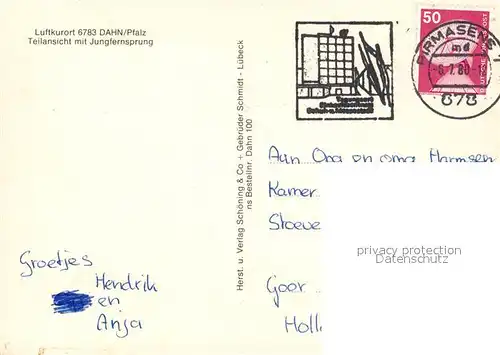 Luftkurort 6783 DAHN/Pfalz
Teilansicht mit Jungfernsprung
Groetjes
Hendrik
en
Anja
Herst. u. Verlag Schöning & Co + Gebrüder Schmidt - Lübeck
ns Bestellnr. Dahn 100
50
DEUTSCHE BUNDESPOST
PIRMASENS 1
md
-8.7.80-
678
Aan Opa en oma Harmsen
Kamer
Stoeve
privacy protection
Datenschutz
Goor
Holl